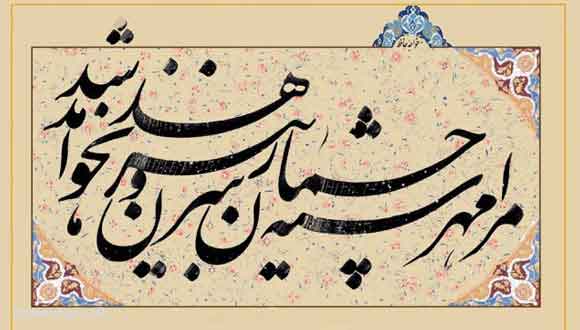 خواجه حافظ
مرا مهر سیه چشمان ز سر بیرون نخواهد شد